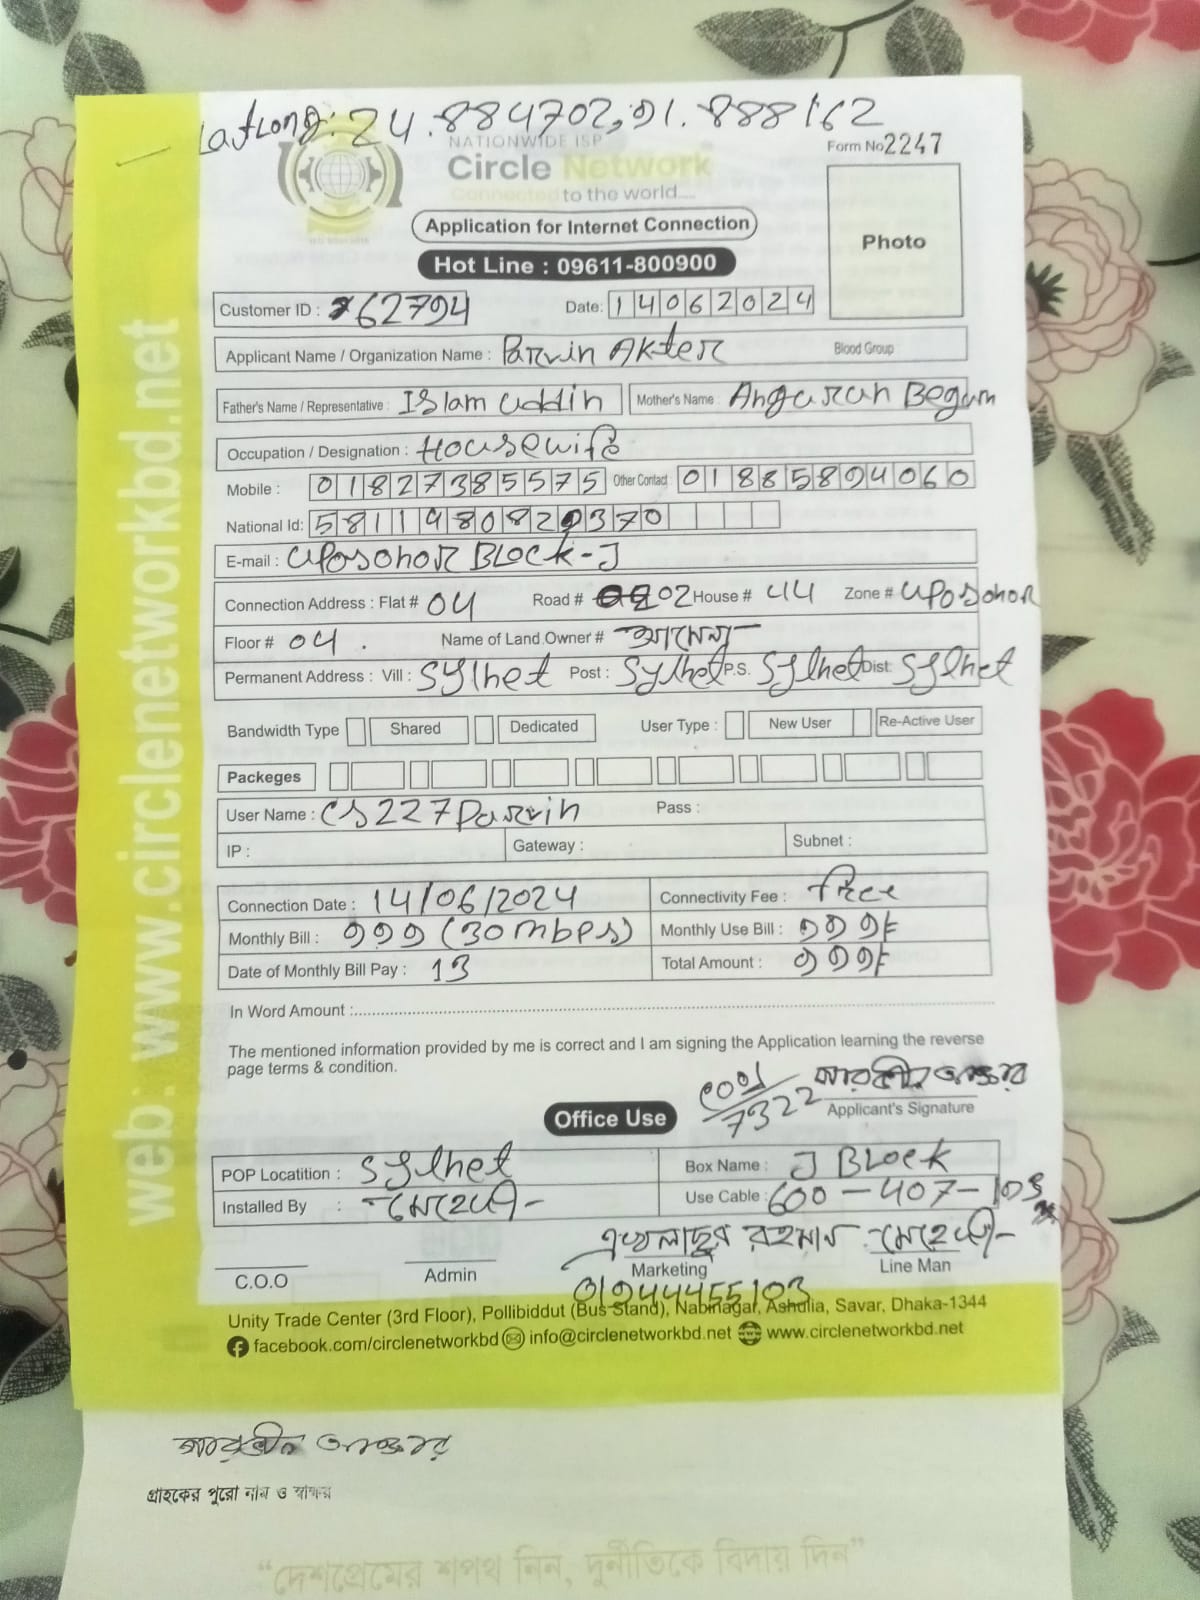 LatLong: 24.884702, 91.888162
NATIONWIDE ISP
Form No 2247
Circle Network
Connected to the world....
Application for Internet Connection
Photo
Hot Line : 09611-800900
Customer ID : 62794 Date: 14062024
Applicant Name / Organization Name : Parvin Akter Blood Group
Father's Name / Representative : Islam uddin Mother's Name : Anguran Begum
Occupation / Designation : Housewife
Mobile : 01827385575 Other Contact : 01885894060
National Id: 5811980820370
E-mail : uposohor Block-J
Connection Address : Flat # 04 Road # 02 House # 44 Zone # uposohor
Floor # 04 . Name of Land Owner #
Permanent Address : Vill : Sylhet Post : Sylhet P.S. Sylhet Dist: Sylhet
Bandwidth Type Shared Dedicated User Type : New User Re-Active User
Packeges
User Name : CS227Parvin Pass :
IP : Gateway : Subnet :
Connection Date : 14/06/2024 Connectivity Fee : free
Monthly Bill : ৭৭৭ (30mbps) Monthly Use Bill : ৭৭৭৳
Date of Monthly Bill Pay : 13 Total Amount : ৭৭৭৳
In Word Amount :
The mentioned information provided by me is correct and I am signing the Application learning the reverse
page terms & condition.
পারভীন আক্তার
7322
Applicant's Signature
Office Use
POP Locatition : Sylhet Box Name : J Block
Installed By : মেহেদী Use Cable : 600-407-103
এখলাছুর রহমান মেহেদী
C.O.O Admin Marketing Line Man
Unity Trade Center (3rd Floor), Pollibiddut (Bus Stand), Nabinagar, Ashulia, Savar, Dhaka-1344
facebook.com/circlenetworkbd info@circlenetworkbd.net www.circlenetworkbd.net
web: www.circlenetworkbd.net
পারভীন আক্তার
গ্রাহকের পুরো নাম ও স্বাক্ষর
“দেশপ্রেমের শপথ নিন, দুর্নীতিকে বিদায় দিন”